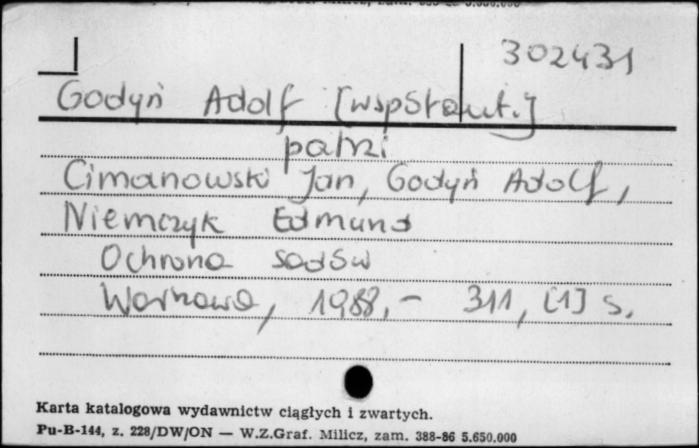 302431
Godyń Adolf [wspótaut.]
patrz
Cimanowski Jan, Godyń Adolf,
Niemczyk Edmund
Ochrona sadów
Warszawa, 1988, - 311, [1] s.
Karta katalogowa wydawnictw ciągłych i zwartych.
Pu-B-144, z. 228/DW/ON — W.Z.Graf. Milicz, zam. 388-86 5.650.000